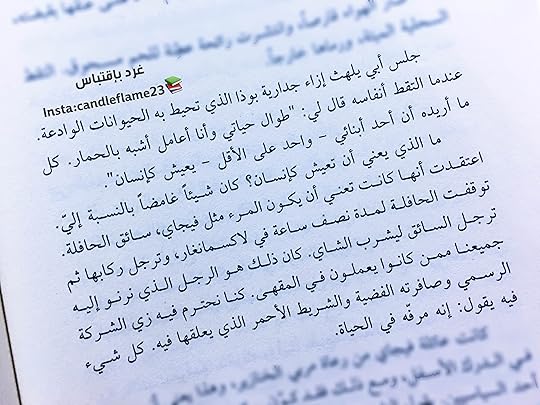 السحلية الميتة، ورماها خارجاً.
غرد بإقتباس
Insta:candleflame23
جلس أبي يلهث إزاء جدارية بوذا الذي تحيط به الحيوانات الوادعة.
عندما التقط أنفاسه قال لي: "طوال حياتي وأنا أعامل أشبه بالحمار. كل
ما أريده أن أحد أبنائي - واحد على الأقل - يعيش كإنسان".
ما الذي يعني أن تعيش كإنسان؟ كان شيئاً غامضاً بالنسبة إليّ.
اعتقدت أنها كانت تعني أن يكون المرء مثل فيجاي، سائق الحافلة.
توقفت الحافلة لمدة نصف ساعة في لاكسمانغار، وترجل ركابها ثم
ترجل السائق ليشرب الشاي. كان ذلك هو الرجل الذي نرنو إليه
جميعنا ممن كانوا يعملون في المقهى. كنا نحترم فيه زي الشركة
الرسمي وصافرته الفضية والشريط الأحمر الذي يعلقها فيه. كل شيء
فيه يقول: إنه مرفّه في الحياة.
كانت عائلة فيجاي من رعاة مربي الخنازير، وهذا يعني أ